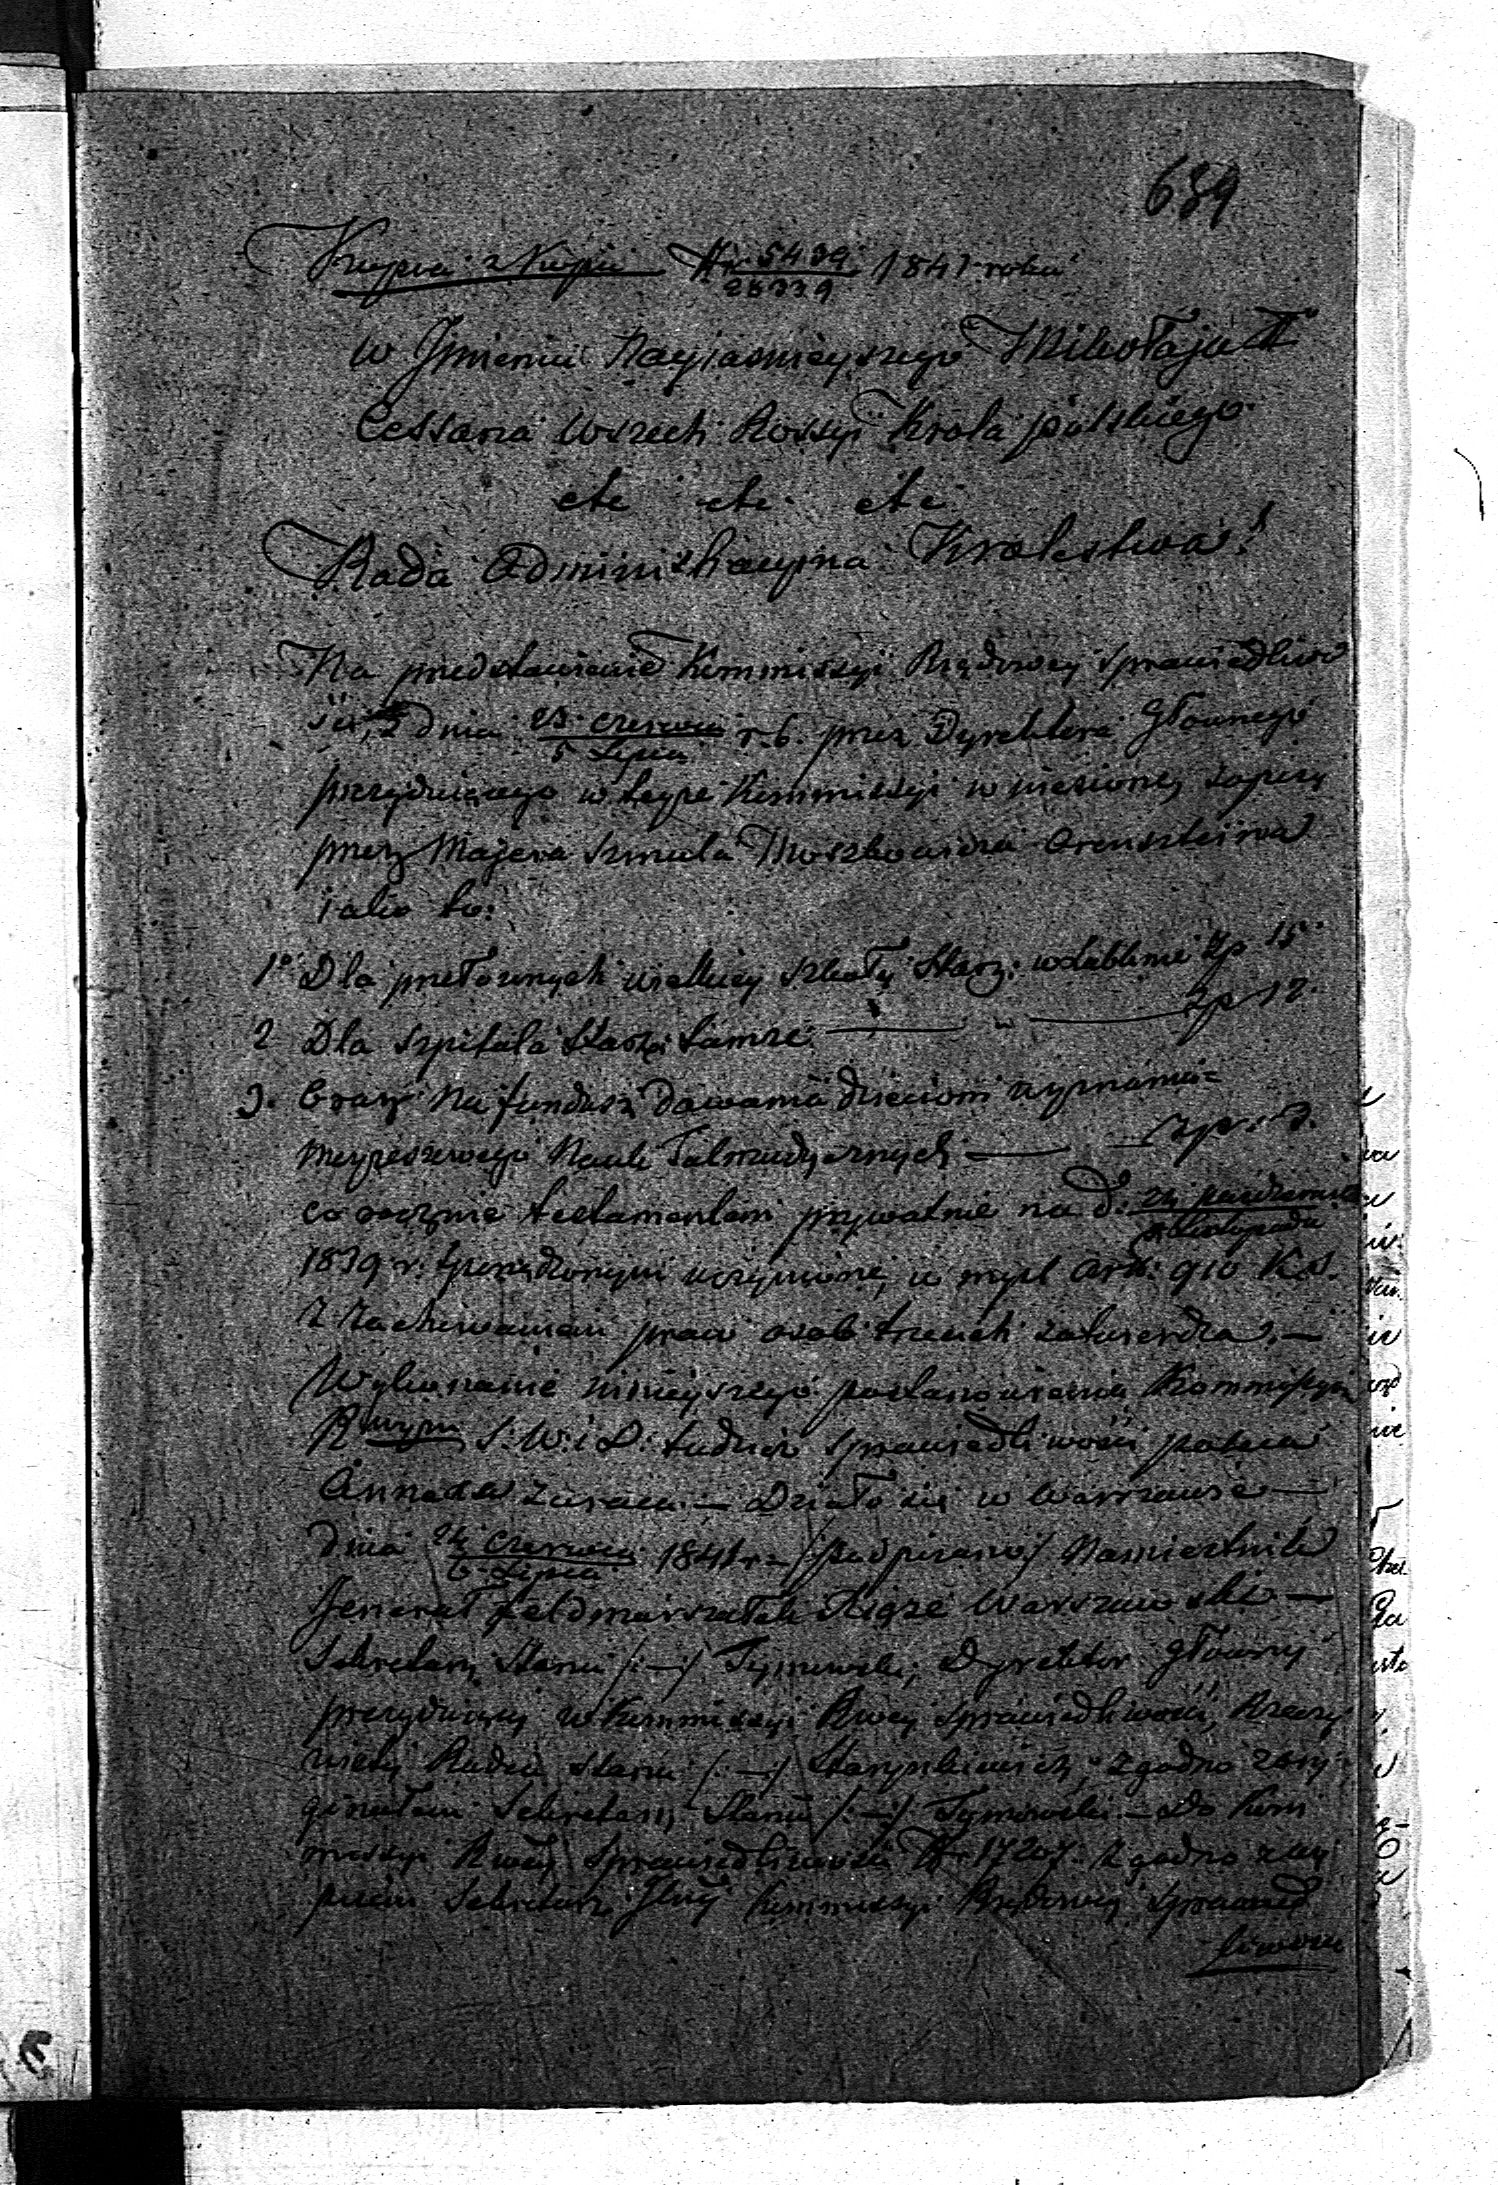 689
Kopia z Kopii Nr 5439/28339 1841 roku
W Imieniu Nayiasnieyszego Mikołaja I
Cessarza Wszech Rossyi Króla polskiego
etc etc etc
Rada Administracyjna Królestwa!
Na przedstawienie Kommissyi Rządowey Sprawiedliwo
ści, z dnia 23 Czerwca/5 Lipca r. b. przez Dyrektora Głownego
prezydującego w teyże Kommissyi wniesione, zapisy
przez Majera Szmula Moszkowicza Orenszteina
jako to:
1° Dla przełożonych wielkiey szkoły Starz: w Lublinie Zp 15
2 Dla szpitala Starz: tamże — „ — Zp 12
3. Oraz na fundusz dawania dzieciom wyznania
Moyżeszowego Nauk Talmudycznych — Zp: 3.
co rocznie testamentem prywatnie na d. 24 Października/5 Listopada
1839 r. sporządzonym uczynione, w myśl Art: 910 K.C.
z zachowaniem praw osób trzecich zatwierdza, —
Wykonanie ninieyszego postanowienia Kommissyom
Rwym S: W: i D: tudzież Sprawiedliwości poleca
— Działo się w Warszawie —
dnia 24 Czerwca/6 Lipca 1841 r — /podpisano/ Namiestnik
Jenerał Feldmarszałek Xiąże Warszawski —
Sekretarz Stanu /:—:/ Tymowski, Dyrektor Główny
prezydujący w Kommissyi Rwey Sprawiedliwości, Rzeczy
wisty Radca Stanu /:—:/ Starynkiewicz, zgodno z ory
ginałem Sekretarz Stanu /:—:/ Tymowski — do Kom
missyi Rwey Sprawiedliwości Nr 17207. Zgodno z wy
pisem Sekretarz Jlny Kommissyi Rządowey Sprawied
liwości